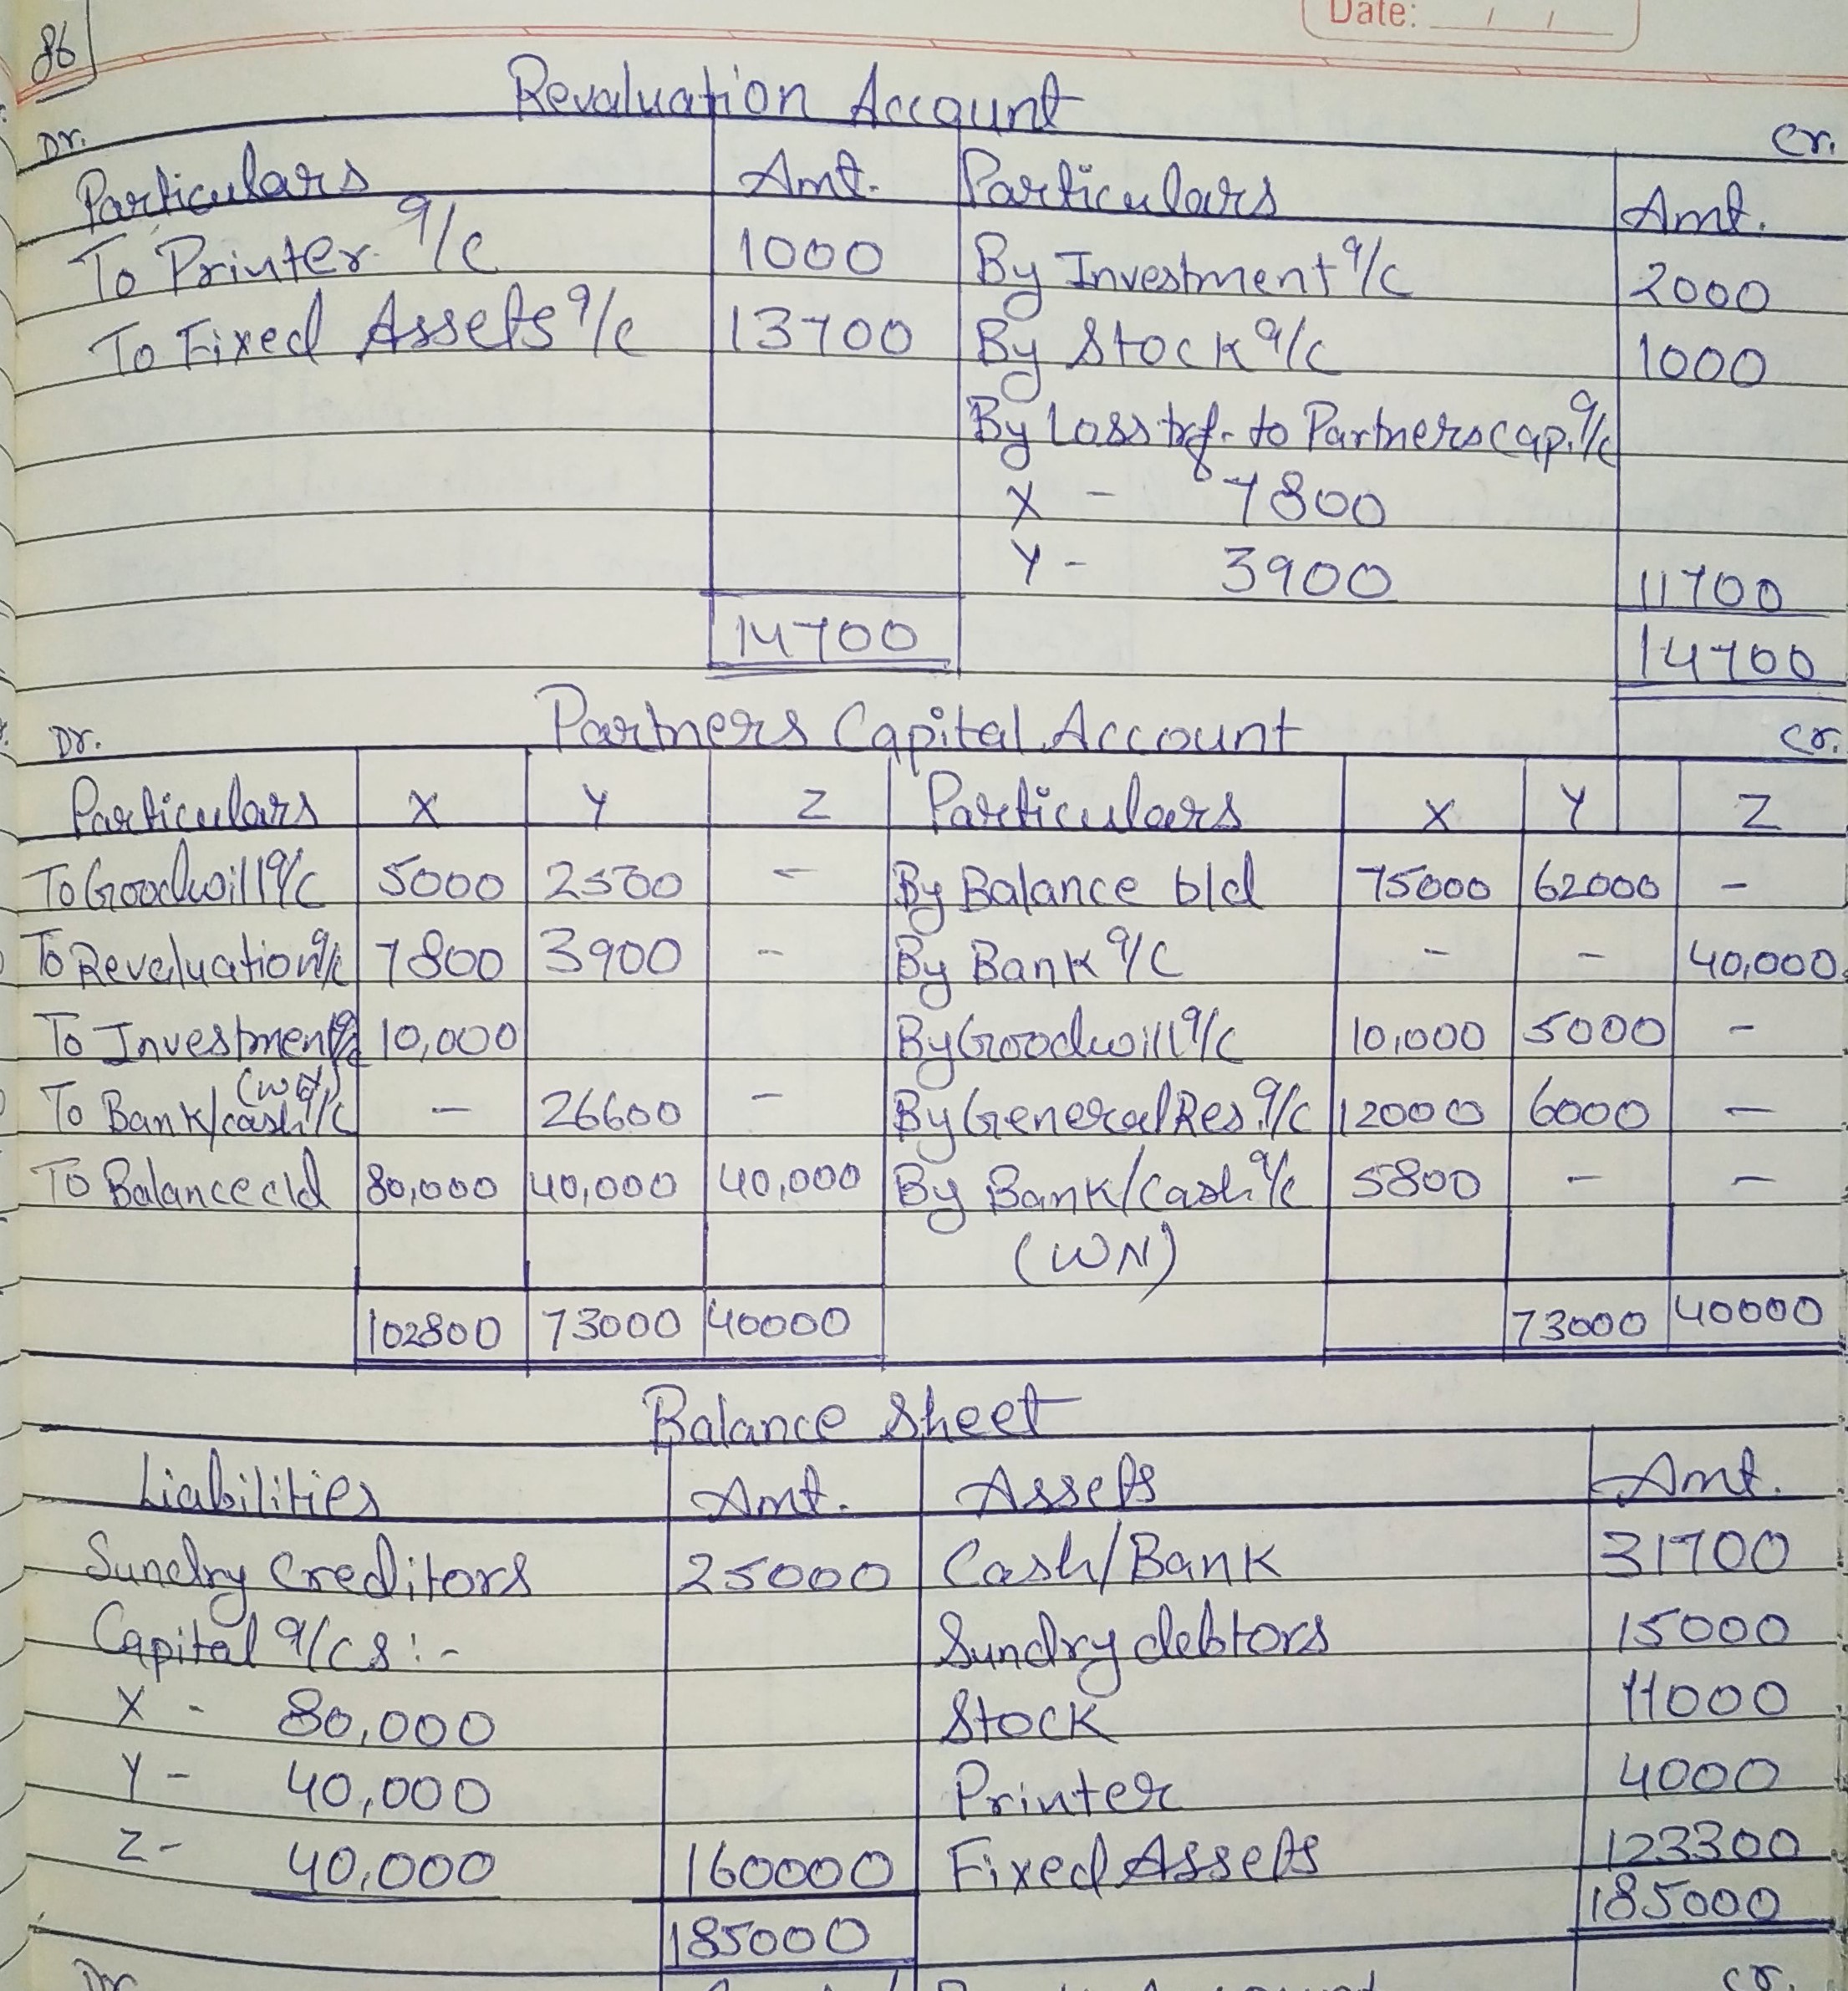 Date: / /
86
Revaluation Account
Dr. Cr.
Particulars Amt. Particulars Amt.
To Printer a/c 1000 By Investment a/c 2000
To Fixed Assets a/c 13700 By Stock a/c 1000
By Loss trf. to Partners cap. a/c
X - 7800
Y - 3900 11700
14700 14700
Partners Capital Account
Dr. Cr.
Particulars X Y Z Particulars X Y Z
To Goodwill a/c 5000 2500 - By Balance b/d 75000 62000 -
To Revaluation a/c 7800 3900 - By Bank a/c - - 40,000
To Investment a/c 10,000 By Goodwill a/c 10,000 5000 -
To Bank/cash a/c - 26600 - By General Res. a/c 12000 6000 -
To Balance c/d 80,000 40,000 40,000 By Bank/Cash a/c 5800 - -
(WN)
102800 73000 40000 73000 40000
Balance Sheet
Liabilities Amt. Assets Amt.
Sundry Creditors 25000 Cash/Bank 31700
Capital a/cs :- Sundry debtors 15000
X - 80,000 Stock 11000
Y - 40,000 Printer 4000
Z - 40,000 160000 Fixed Assets 123300
185000 185000
Dr. Cr.